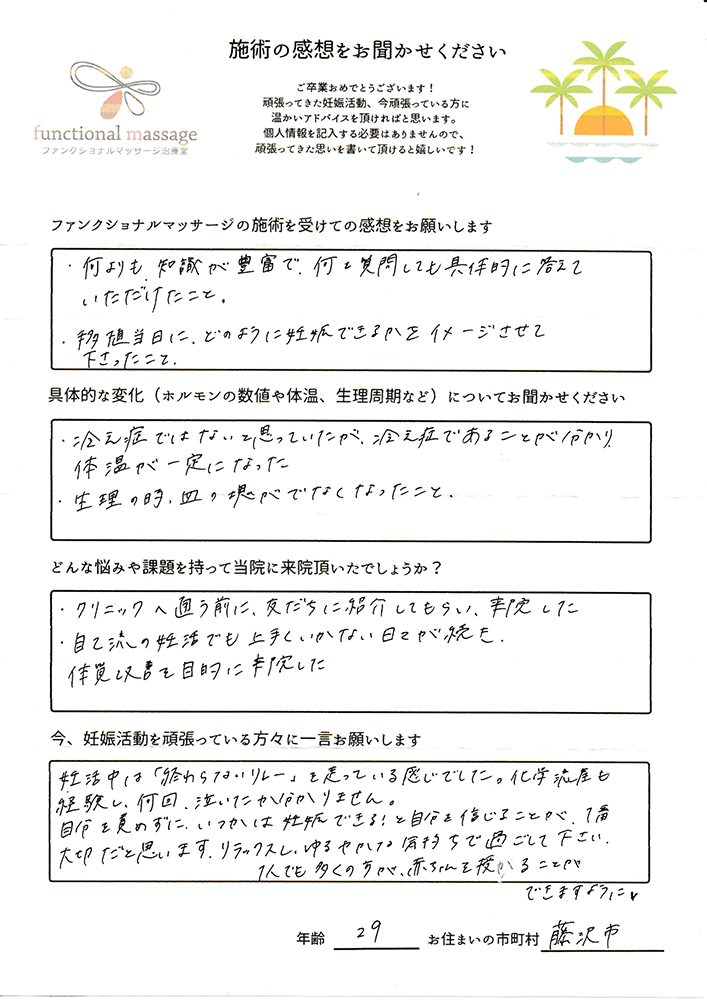 施術の感想をお聞かせください
functional massage
ファンクショナルマッサージ治療室
ご卒業おめでとうございます！
頑張ってきた妊娠活動、今頑張っている方に
温かいアドバイスを頂ければと思います。
個人情報を記入する必要はありませんので、
頑張ってきた思いを書いて頂けると嬉しいです！
ファンクショナルマッサージの施術を受けての感想をお願いします
・何よりも、知識が豊富で、何を質問しても具体的に答えて
いただけたこと。
・移植当日に、どのように妊娠できるかをイメージさせて
下さったこと。
具体的な変化（ホルモンの数値や体温、生理周期など）についてお聞かせください
・冷え症ではないと思っていたが、冷え症であることが分かり、
体温が一定になった
・生理の時、血の塊がでなくなったこと。
どんな悩みや課題を持って当院に来院頂いたでしょうか？
・クリニックへ通う前に、友だちに紹介してもらい、来院した
・自己流の妊活でも上手くいかない日々が続き、
体質改善を目的に来院した
今、妊娠活動を頑張っている方々に一言お願いします
妊活中は「終わらないリレー」を走っている感じでした。化学流産も
経験し、何回、泣いたか分かりません。
自分を責めずに、いつかは妊娠できる！と自分を信じることが、1番
大切だと思います。リラックスし、ゆるやかな気持ちで過ごして下さい。
1人でも多くの方が、赤ちゃんを授かることが
できますように♥
年齢 29 お住まいの市町村 藤沢市